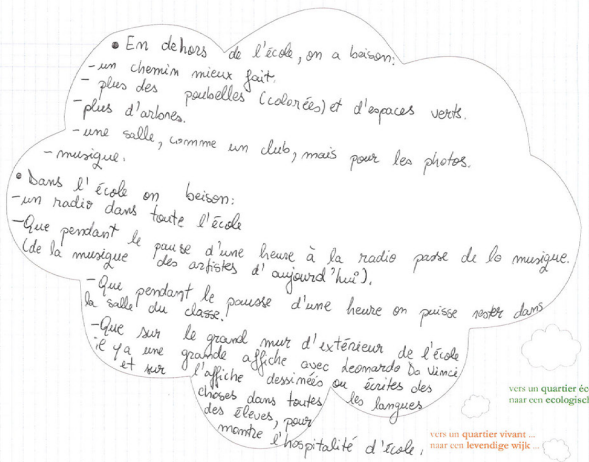 • En dehors de l'école, on a beison:
- un chemin mieux fait.
- plus des poubelles (colorées) et d'espaces verts.
- plus d'arbres.
- une salle, comme un club, mais pour les photos.
- musique.
• Dans l'école on beison:
- un radio dans toute l'école
- Que pendant le pause d'une heure à la radio passe de la musique.
(de la musique des astistes d'aujourd'hui).
- Que pendant le pausse d'une heure on puisse rester dans
la salle du classe.
- Que sur le grand mur d'extérieur de l'école
il y a une grande affiche avec Leonardo Da Vinci
et sur l'affiche dessinées ou écrites des
choses dans toutes les langues
des élèves, pour
montre l'hospitalité d'école.
vers un quartier éc
naar een ecologisch
vers un quartier vivant ...
naar een levendige wijk ...